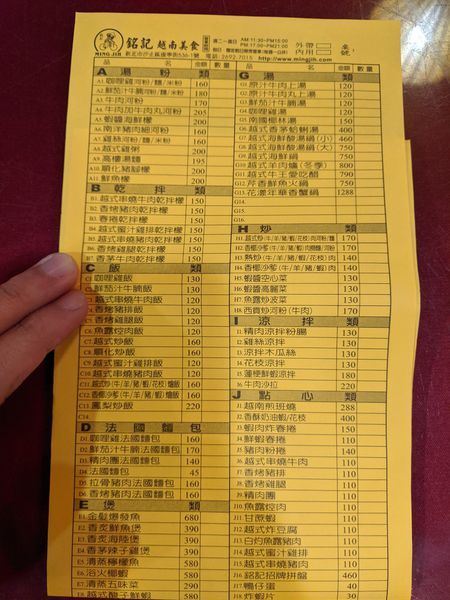 銘記 越南美食
MING JIH
週二~週日
AM:11:30~PM15:00
PM:17:00~PM21:00
電話:2692-7015
http://www.mingjih.com
外帶
內用
桌號:
品名 金額 數量
A 湯粉類
A1.咖哩雞河粉/麵/米粉 160
A2.鮮茄汁牛腩河粉/麵/米粉 180
A3.牛肉河粉 170
A4.牛肉加牛肉丸河粉 205
A5.蝦醬海鮮檬 200
A6.南洋豬肉細河粉 160
A7.越式雞粥 160
A8.越式海鮮粥 200
A9.高樓湯麵 195
A10.順化豬腳檬 220
A11.鮮魚檬 200
B 乾拌類
B1.越式串燒牛肉乾拌檬 150
B2.香烤豬肉乾拌檬 150
B3.春捲乾拌檬 150
B4.越式蜜汁雞排乾拌檬 150
B5.越式串燒豬肉乾拌檬 150
B6.香烤雞腿乾拌檬 150
B7.香茅牛肉乾拌檬 150
C 飯類
C1.咖哩雞飯 130
C2.鮮茄汁牛腩飯 130
C3.越式串燒牛肉飯 130
C4.香烤豬排飯 130
C5.香烤雞腿飯 130
C6.魚露焢肉飯 130
C7.越式炒飯 160
C8.順化炒飯 160
C9.越式蜜汁雞排飯 130
C10.越式串燒豬肉飯 130
C11.越式炒(牛/羊/豬/蝦/花枝)燴飯 160
C12.香椰沙爹(牛/羊/豬/蝦/花枝)燴飯 160
C13.鳳梨炒飯 220
C14.
D 法國麵包
D1.咖哩雞法國麵包 160
D2.鮮茄汁牛腩法國麵包 170
D3.精肉團法國麵包 140
D4.法國麵包 45
D5.拉骨豬肉法國麵包 160
D6.香烤豬肉法國麵包 160
E 煲類
E1.金髮爆發魚 680
E2.香炙鮮魚煲 390
E3.香炙海陸煲 390
E4.香茅辣子雞煲 390
E5.清蒸檸檬魚 380
E6.浴火椰蝦 380
E7.清蒸五味菜 290
品名 金額 數量
G 湯類
G1.原汁牛肉上湯 120
G2.原汁牛肉丸上湯 120
G3.鮮茄汁牛腩湯 120
G4.咖哩雞湯 120
G5.南國椰林湯 150
G6.越式香魚蛤蜊湯 400
G7.越式海鮮酸湯鍋(小) 460
G8.越式海鮮酸湯鍋(大) 750
G9.越式海鮮鍋 750
G10.越式羊肉爐(冬季) 800
G11.越式牛王愛吃醋 790
G12.芹香鮮魚火鍋 750
G13.花灑年華香蟹鍋 1288
G14.
G15.
G16.
H 炒類
H1.越式炒(牛/羊/豬/蝦/花枝)肉河粉/麵 170
H2.香椰沙爹(牛/羊/豬/蝦/花枝)肉炒麵/河粉 170
H3.熱炒(牛/羊/豬/蝦/花枝)肉 140
H4.香椰沙爹(牛/羊/豬/蝦/花枝)肉 140
H5.蝦醬空心菜 130
H6.蝦醬高麗菜 130
H7.魚露炒波菜 130
H8.西貢炒河粉(牛肉) 170
I 涼拌類
I1.精肉涼拌粉腸 130
I2.雞絲涼拌 130
I3.涼拌木瓜絲 130
I4.花枝涼拌 130
I5.蓮梗鮮蝦涼拌 180
I6.牛肉沙拉 220
J 點心類
J1.越南煎班燒 288
J2.香酥奶油蝦/花枝 400
J3.蝦肉炸春捲 150
J4.鮮蝦春捲 110
J5.豬肉粉捲 140
J6.越式串燒牛肉 110
J9.精肉團 110
J10.魚露焢肉 110
J11.甘蔗蝦 110
J12.越式炸豆腐 110
J13.白灼魚露豬肉 110
J14.越式蜜汁雞排 110
J15.越式香烤豬排 110
J16.銘記招牌拼盤 460
J17.鴨仔蛋 40
J18.炸蝦片 30